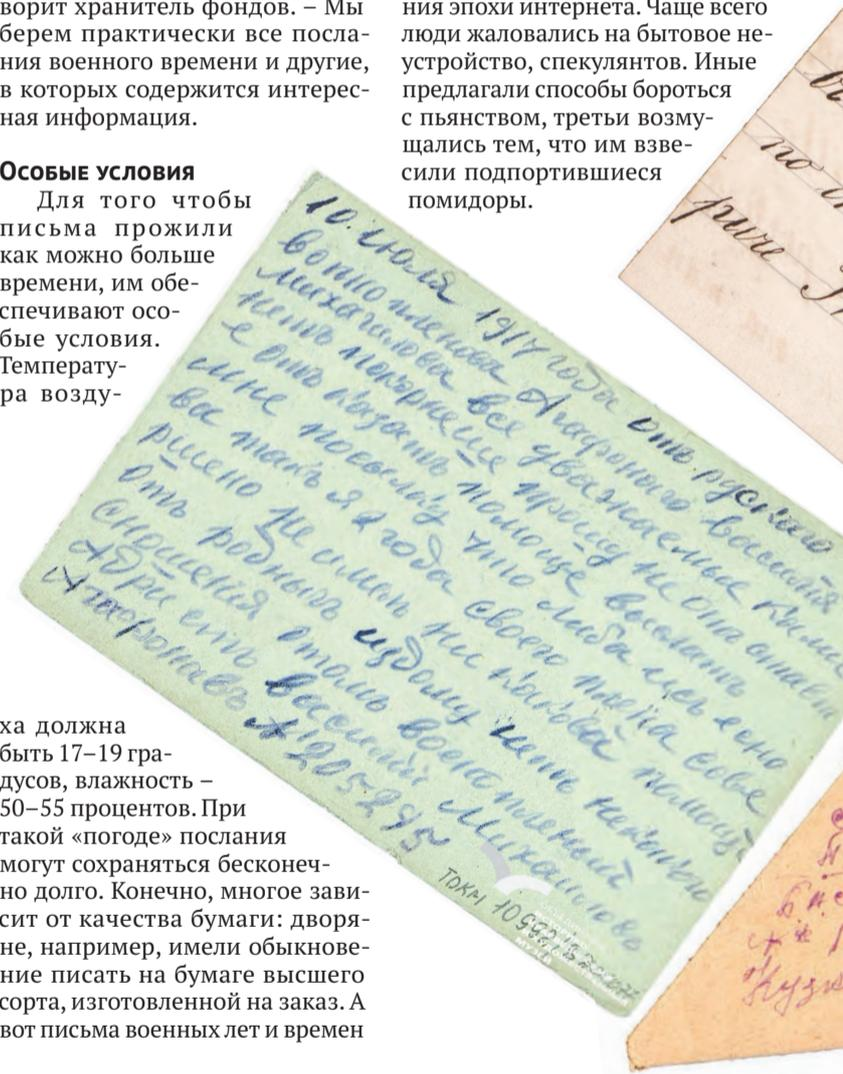 ворит хранитель фондов. – Мы
берем практически все посла-
ния военного времени и другие,
в которых содержится интерес-
ная информация.
Особые условия
Для того чтобы
письма прожили
как можно больше
времени, им обе-
спечивают осо-
бые условия.
Температу-
ра возду-
ха должна
быть 17–19 гра-
дусов, влажность –
50–55 процентов. При
такой «погоде» послания
могут сохраняться бесконеч-
но долго. Конечно, многое зави-
сит от качества бумаги: дворя-
не, например, имели обыкнове-
ние писать на бумаге высшего
сорта, изготовленной на заказ. А
вот письма военных лет и времен
ния эпохи интернета. Чаще всего
люди жаловались на бытовое не-
устройство, спекулянтов. Иные
предлагали способы бороться
с пьянством, третьи возму-
щались тем, что им взве-
сили подпортившиеся
помидоры.
10. июля 1917 года отъ руского
военопленова Агафонаго василия
михагалова все уважаемые
нетъ покорнеше прошу не
е отъ казать помоще выслать
мне посылку что либа
ва такъ я 2 года своего плена
ршено не имел ни какова помощ
отъ родныхъ издому нетъ
сношения отомъ военопленый
Адри есть василий Михаилово
Агафонавъ № 205295
ТОКМ
по
риче
Кузн